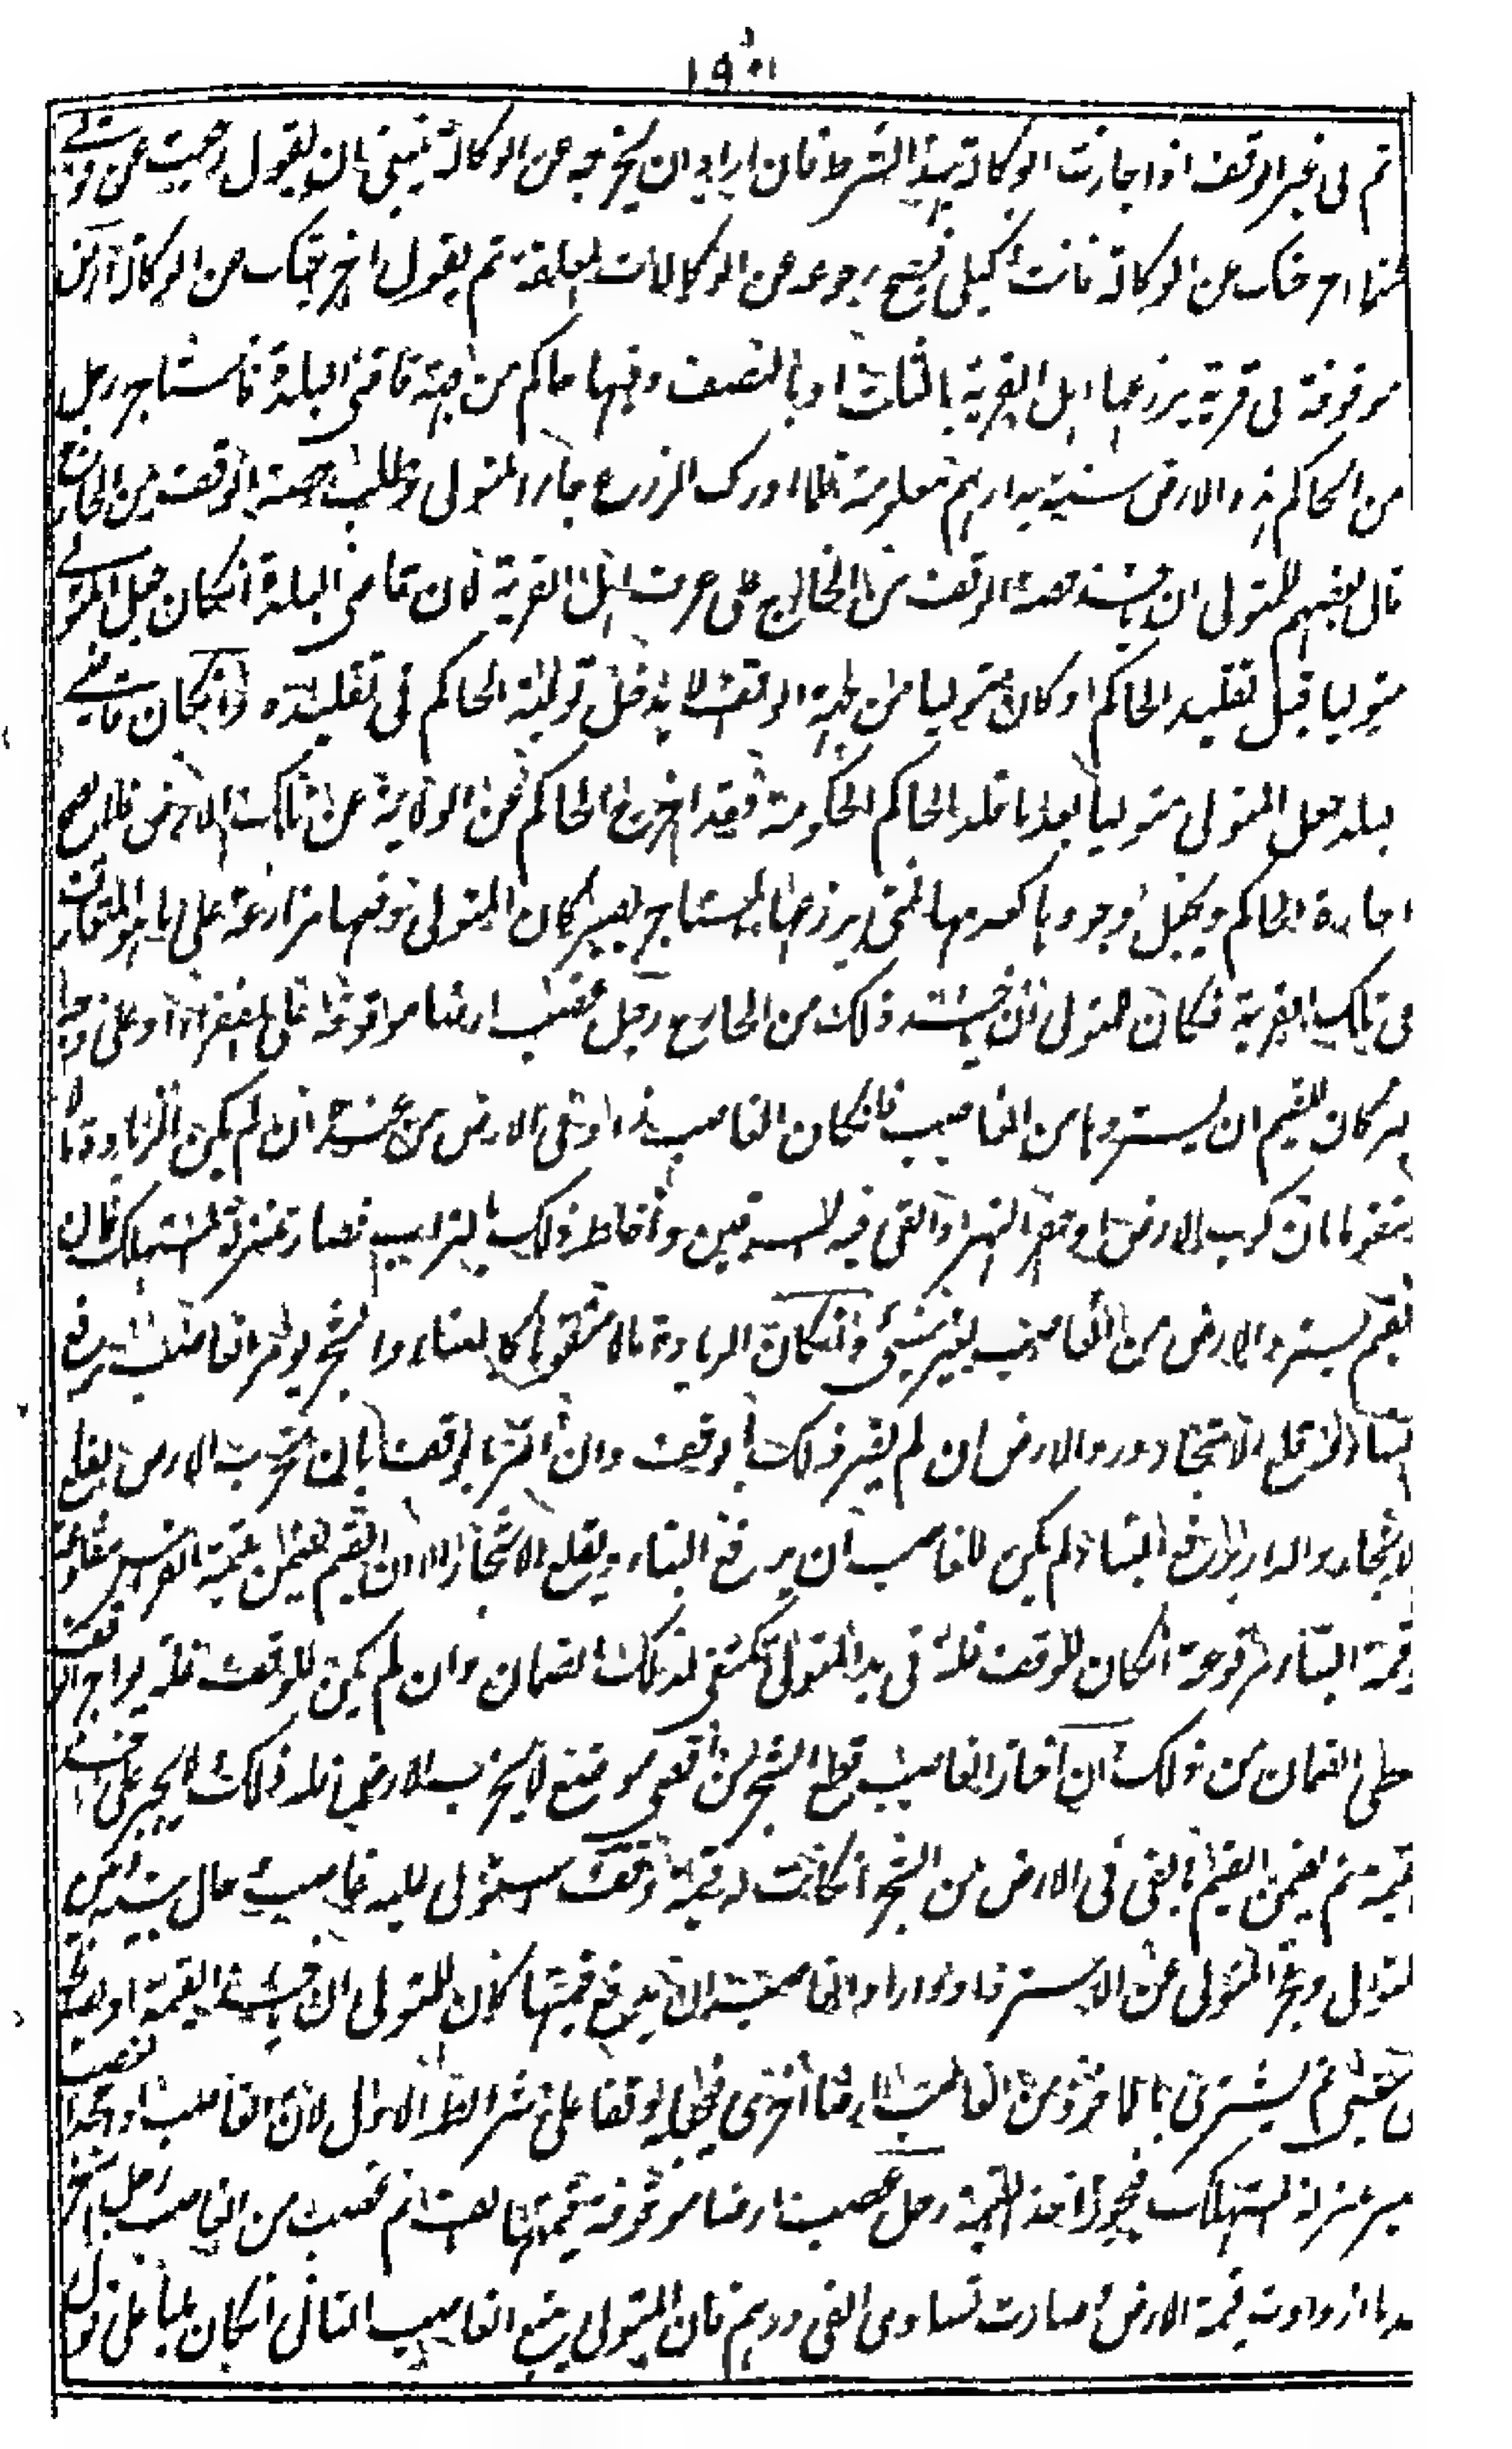 ثم فى غير الوقف اذا جازت الوكالة بهذا الشرط فان اراد ان يخرجه عن الوكالة ينبغى ان يقول رجعت عن
اخرجتك عن الوكالة فانت وكيلى فيصح رجوعه عن الوكالات المعلقة ثم يقول اخرجتك من الوكالة ارض
موقوفة فى قرية يزرعها اهل القرية بالثلث او بالنصف وفيها حاكم من جهة قاضى البلدة فاستاجر رجل
من الحاكم هذه الارض سنة بدراهم معلومة فلما ادرك الزرع جاء المتولى وطلب حصة الوقف من الخارج
قال بعضهم للمتولى ان ياخذ حصة الوقف من الخارج على عرف اهل القرية لان قاضى البلدة انكان جعل المتولى
متوليا قبل تقليد الحاكم او كان متوليا من جهة الواقف لا يدخل تولية الحاكم فى تقليده وانكان قاضى
بلد جعل المتولى متوليا بعد ما قلد الحاكم الحكومة فقد اخرج الحاكم من الولاية عن تلك الارض فلا يصح
اجارة الحاكم ويجعل وجودها كعدمها فمتى يزرعها المستاجر يصير كان المتولى دفعها مزارعة على ما هو المتعارف
فى تلك القرية فكان للمتولى ان ياخذ ذلك من الخارج رجل غصب ارضا موقوفة على الفقراء او على وجه
بر كان للقيم ان يستردها من الغاصب فانكان الغاصب زاد فى الارض من عنده ان لم يكن الزيادة مالا
متقوما بان كرب الارض او حفر النهر او القى فيه السرقين واختلط ذلك بالتراب فصار بمنزلة المستهلك فان
القيم يسترد الارض من الغاصب بغير شىء وانكانت الزيادة مالا متقوما كالبناء والشجر يؤمر الغاصب برفع
البناء وقلع الاشجار ورد الارض ان لم يضر ذلك بالوقف وان اضر بالوقف بان خرب الارض بقلع
الاشجار والدار برفع البناء لم يكن للغاصب ان يرفع البناء ويقلع الاشجار الا ان القيم يضمن قيمة الغرس مقلوعا
وقيمة البناء مرفوعة انكان للوقف غلة فى يد المتولى تكفى لذلك الضمان وان لم يكن للوقف غلة يؤاجر الوقف
فيعطى الضمان من ذلك ان اختار الغاصب قطع الشجر من اقصى موضع لا يخرب الارض فله ذلك لا يجبر على اخذ
القيمة ثم يضمن القيم ما بقى فى الارض من الشجر انكانت له قيمة وقف استولى عليه غاصب حال بينه وبين
المتولى وعجز المتولى عن الاسترداد واراد الغاصب ان يدفع قيمتها كان للمتولى ان ياخذ القيمة او يصالح
على شىء ثم يشترى بالماخوذ من الغاصب ارضا اخرى فيجعله وقفا على شرائط الاول لان الغاصب اذا جحد الغصب
يصير بمنزلة المستهلك فيجوز اخذ القيمة رجل غصب ارضا موقوفة قيمتها الف ثم غصب من الغاصب رجل آخر
بعد ما ازدادت قيمة الارض وصارت تساوى الفى درهم فان المتولى يتبع الغاصب الثانى انكان مليا على قول